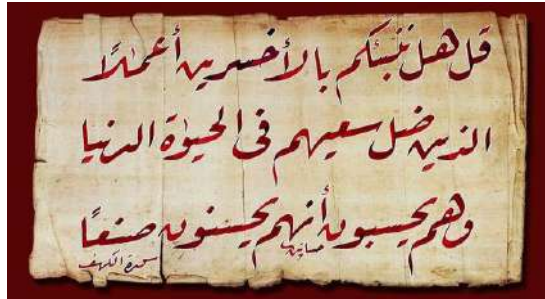 قل هل ننبئكم بالأخسرين أعملًا
الذين ضل سعيهم في الحيوٰة الدنيا
وهم يحسبون أنهم يحسنون صنعًا
سورة الكهف